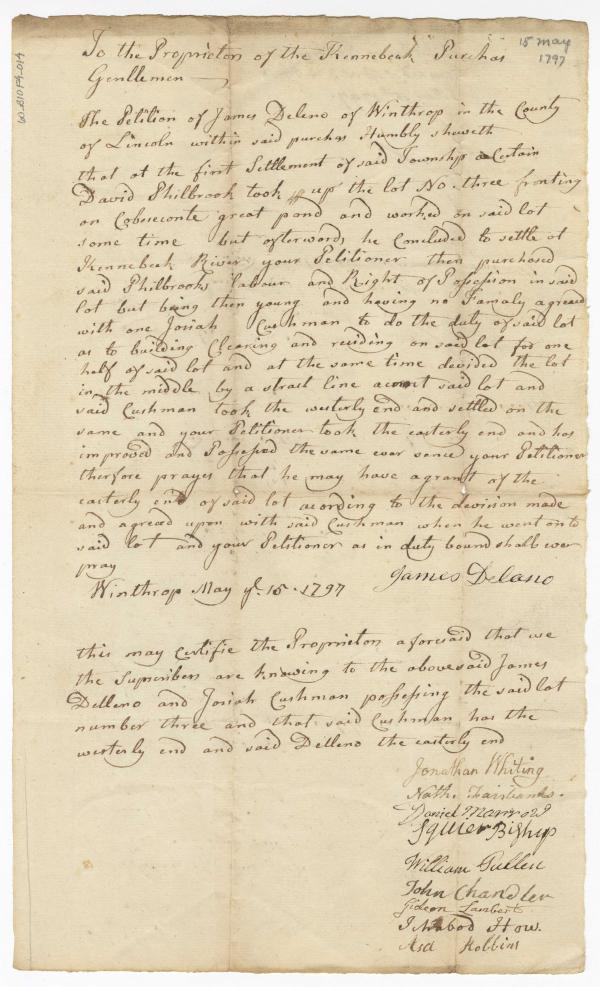 15 may
1797
To the Proprietors of the Kennebeck Purchas
Gentlemen
The Petition of James Deleno of Winthrop in the County
of Lincoln within said purchas Humbly sheweth
that at the first Settlement of said Township a Certain
David Philbrook took up the lot No. three fronting
on Cobeseconte great pond and worked on said lot
some time but afterwards he Concluded to settle at
Kennebeck River your Petitioner then purchased
said Philbrooks labour and Right of Possession in said
lot but being then young and having no Famaly agreed
with one Josiah Cushman to do the duty of said lot
as to building Clearing and residing on said lot for one
half of said lot and at the same time devided the lot
in the middle by a strait line acrost said lot and
said Cushman took the westerly end and settled on the
same and your Petitioner took the easterly end and has
improved and Possesed the same ever sence your Petitioner
therefore prayes that he may have a grant of the
easterly end of said lot acording to the devision made
and agreed upon with said Cushman when he went on to
said lot and your Petitioner as in duty bound shall ever
pray
James Delano
Winthrop May ye 15. 1797
this may Certifie the Proprietors aforesaid that we
the Supscribers are knowing to the abovesaid James
Delleno and Josiah Cushman possessing the said lot
number three and that said Cushman has the
westerly end and said Delleno the easterly end
Jonathan Whiting
Nath. Fairbanks
Daniel Marrow
Squier Bishup
William Pullen
John Chandler
Gideon Lambert
Ichabod How.
Asa Robbins